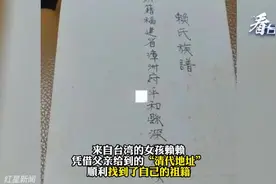 看台
賴氏族譜
籍福建省漳洲府平和縣深
红星新闻
来自台湾的女孩赖赖
凭借父亲给到的“清代地址”
顺利找到了自己的祖籍